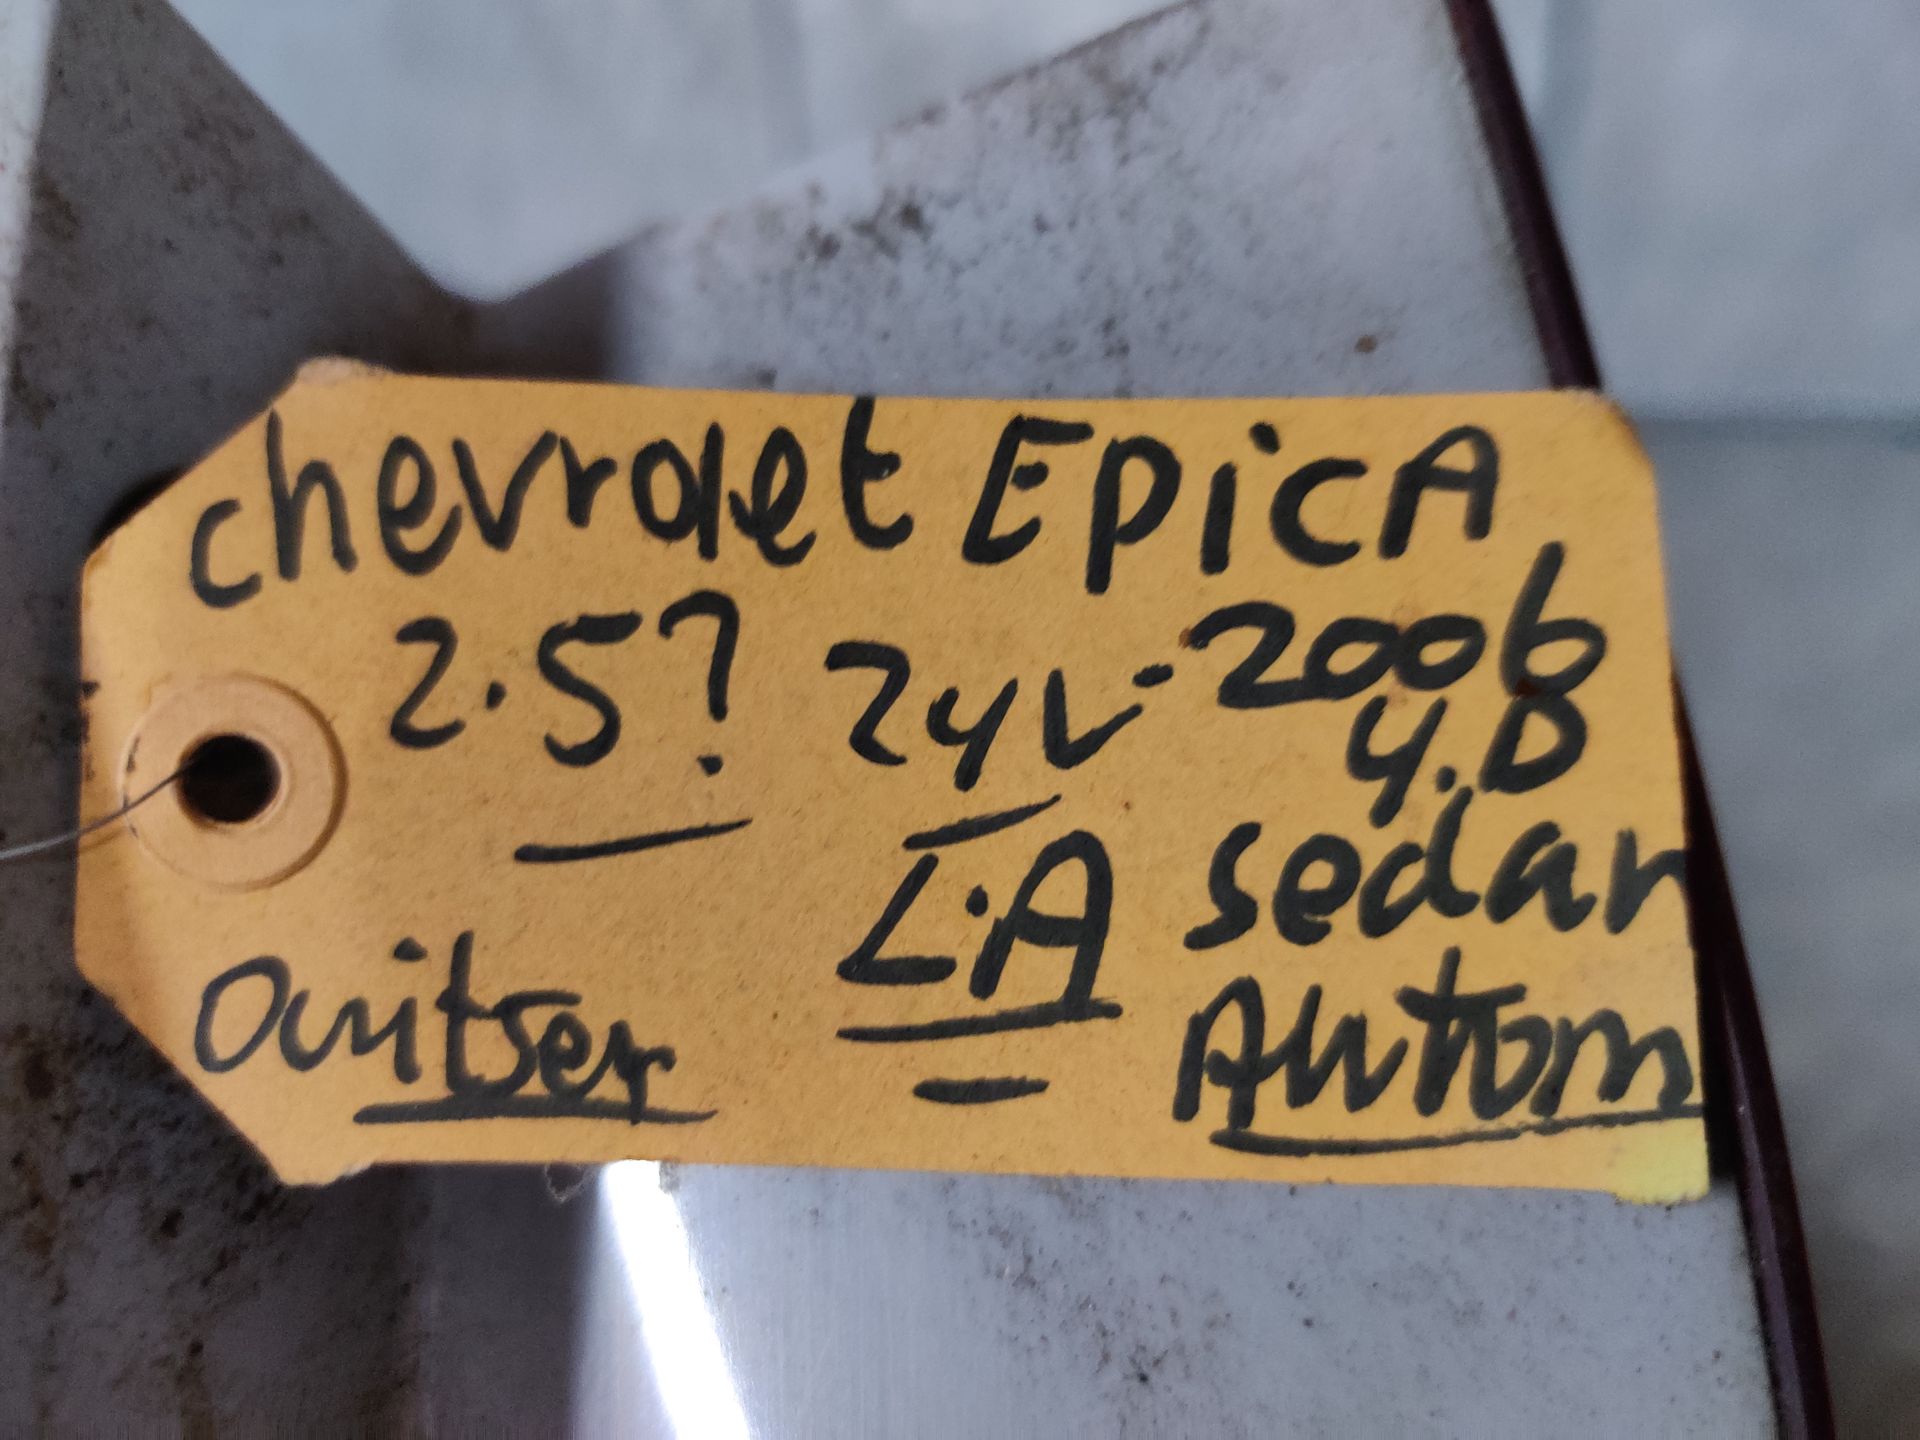 chevrolet EpicA
2.5? 24V - 2006
4.D
L.A sedan
Ouitser Autom